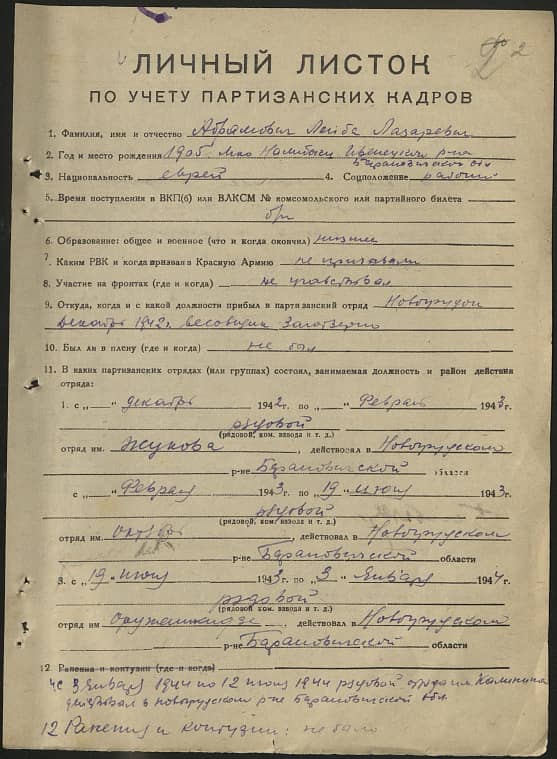 2
ЛИЧНЫЙ ЛИСТОК
ПО УЧЕТУ ПАРТИЗАНСКИХ КАДРОВ
1. Фамилия, имя и отчество Абрамович Лейба Лазаревич
2. Год и место рождения 1905 Ивенецкого р-на
Барановичской обл
3. Национальность еврей 4. Соцположение рабочий
5. Время поступления в ВКП(б) или ВЛКСМ № комсомольского или партийного билета
б/п
6. Образование: общее и военное (что и когда окончил) низшее
7. Каким РВК и когда призван в Красную Армию не призывали
8. Участие на фронтах (где и когда) не участвовал
9. Откуда, когда и с какой должности прибыл в партизанский отряд Новогрудок
декабрь 1942г. весовщик Заготзерно
10. Был ли в плену (где и когда) не был
11. В каких партизанских отрядах (или группах) состоял, занимаемая должность и район действия
отряда:
1. с „ “ декабрь 1942г. по „ “ Февраль 1943г.
рядовой
(рядовой, ком. взвода и т. д.)
отряд им. Жукова, действовал в Новогрудском
р-не Барановичской области
с „ “ Февраля 1943г. по „19“ июня 1943г.
рядовой
(рядовой, ком. взвода и т. д.)
отряд им. Октябрь, действовал в Новогрудском
р-не Барановичской области
3. с „19“ июня 1943г. по „3“ Января 1944г.
рядовой
(рядовой, ком. взвода и т. д.)
отряд им Орджоникидзе, действовал в Новогрудском
р-не Барановичской области
12. Ранения и контузии (где и когда)
4 с 3 Января 1944 по 12 июля 1944 рядовой отряда им Калинина
действовал в Новогрудском р-не Барановичской обл.
12 Ранения и контузии: не было